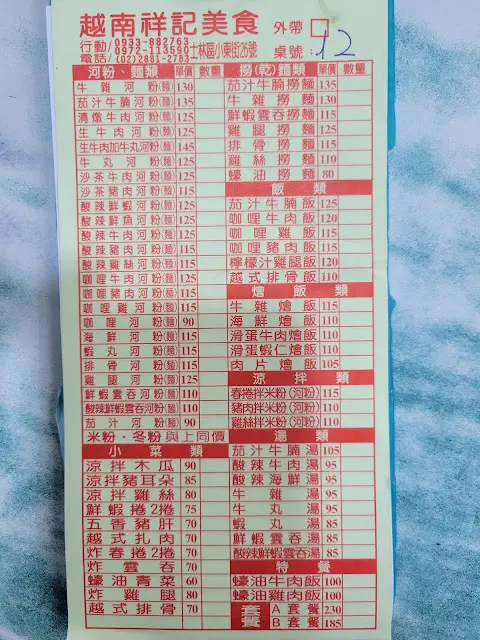 越南祥記美食 外帶
行動/0933-882763
0972-113590
電話/(02)2881-2783
士林區小東街26號
桌號: 12
河粉、麵類 單價 數量
牛雜河粉(麵) 130
茄汁牛腩河粉(麵) 135
清燉牛肉河粉(麵) 125
生牛肉河粉(麵) 125
生牛肉加牛丸河粉(麵) 145
牛丸河粉(麵) 115
沙茶牛肉河粉(麵) 125
沙茶豬肉河粉(麵) 115
酸辣鮮蝦河粉(麵) 125
酸辣鮮魚河粉(麵) 125
酸辣牛肉河粉(麵) 125
酸辣豬肉河粉(麵) 115
酸辣雞絲河粉(麵) 115
咖哩牛肉河粉(麵) 125
咖哩豬肉河粉(麵) 115
咖哩雞河粉(麵) 115
咖哩河粉(麵) 90
海鮮河粉(麵) 115
蝦丸河粉(麵) 115
排骨河粉(麵) 115
雞腿河粉(麵) 125
鮮蝦雲吞河粉(麵) 110
酸辣鮮蝦雲吞河粉(麵) 110
茄汁河粉(麵) 90
米粉、冬粉與上同價
小菜類
涼拌木瓜 90
涼拌豬耳朵 85
涼拌雞絲 80
鮮蝦捲2捲 75
五香豬肝 70
越式扎肉 70
炸春捲2捲 70
炸雲吞 70
蠔油青菜 60
炸雞腿 80
越式排骨 70
撈(乾)麵類 單價 數量
茄汁牛腩撈麵 135
牛雜撈麵 130
鮮蝦雲吞撈麵 115
雞腿撈麵 125
排骨撈麵 115
雞絲撈麵 110
蠔油撈麵 80
飯類
茄汁牛腩飯 125
咖哩牛肉飯 120
咖哩雞飯 115
咖哩豬肉飯 115
檸檬汁雞腿飯 120
越式排骨飯 110
燴飯類
牛雜燴飯 115
海鮮燴飯 110
滑蛋牛肉燴飯 110
滑蛋蝦仁燴飯 110
肉片燴飯 105
涼拌類
春捲拌米粉(河粉) 115
豬肉拌米粉(河粉) 110
雞絲拌米粉(河粉) 110
湯類
茄汁牛腩湯 105
酸辣牛肉湯 95
酸辣海鮮湯 95
牛雜湯 95
牛丸湯 95
蝦丸湯 85
鮮蝦雲吞湯 85
酸辣鮮蝦雲吞湯 85
特餐
蠔油牛肉飯 100
蠔油雞肉飯 100
套餐 A套餐 230
B套餐 185